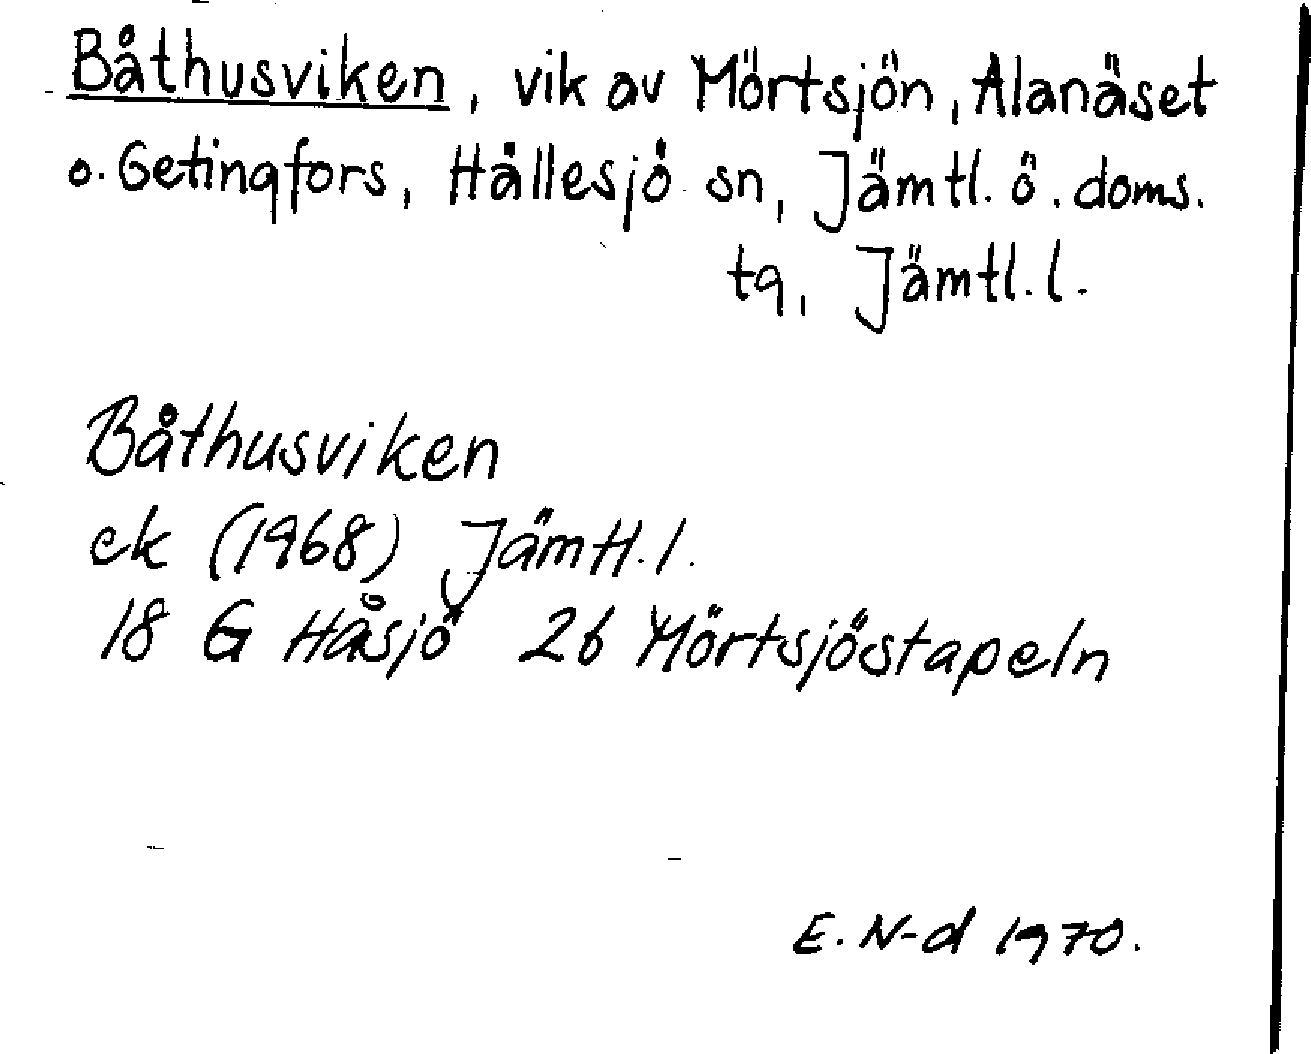 Båthusviken, vik av Mörtsjön, Alanäset
o. Getingfors, Hällesjö sn, Jämtl. ö. doms.
tg, Jämtl. l.
Båthusviken
ek (1968) Jämtl. l.
18 G Håsjö 2b Mörtsjöstapeln
E. N-d 1970.